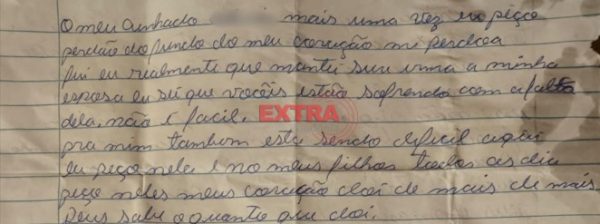 O meu Cunhado mais uma vez eu peço
perdão do fundo do meu coração mi perdoa
fui eu realmente que mantei sua irma a minha
esposa eu sei que vocêis estão sofrendo com a falta
dela, não é facil.
EXTRA
pra mim tambem esta sendo dificil aqui
eu peço nela e no meus filhos todos as dia
peço neles meus coração doi de mais de mais
Deus sabe o quanto que doi.